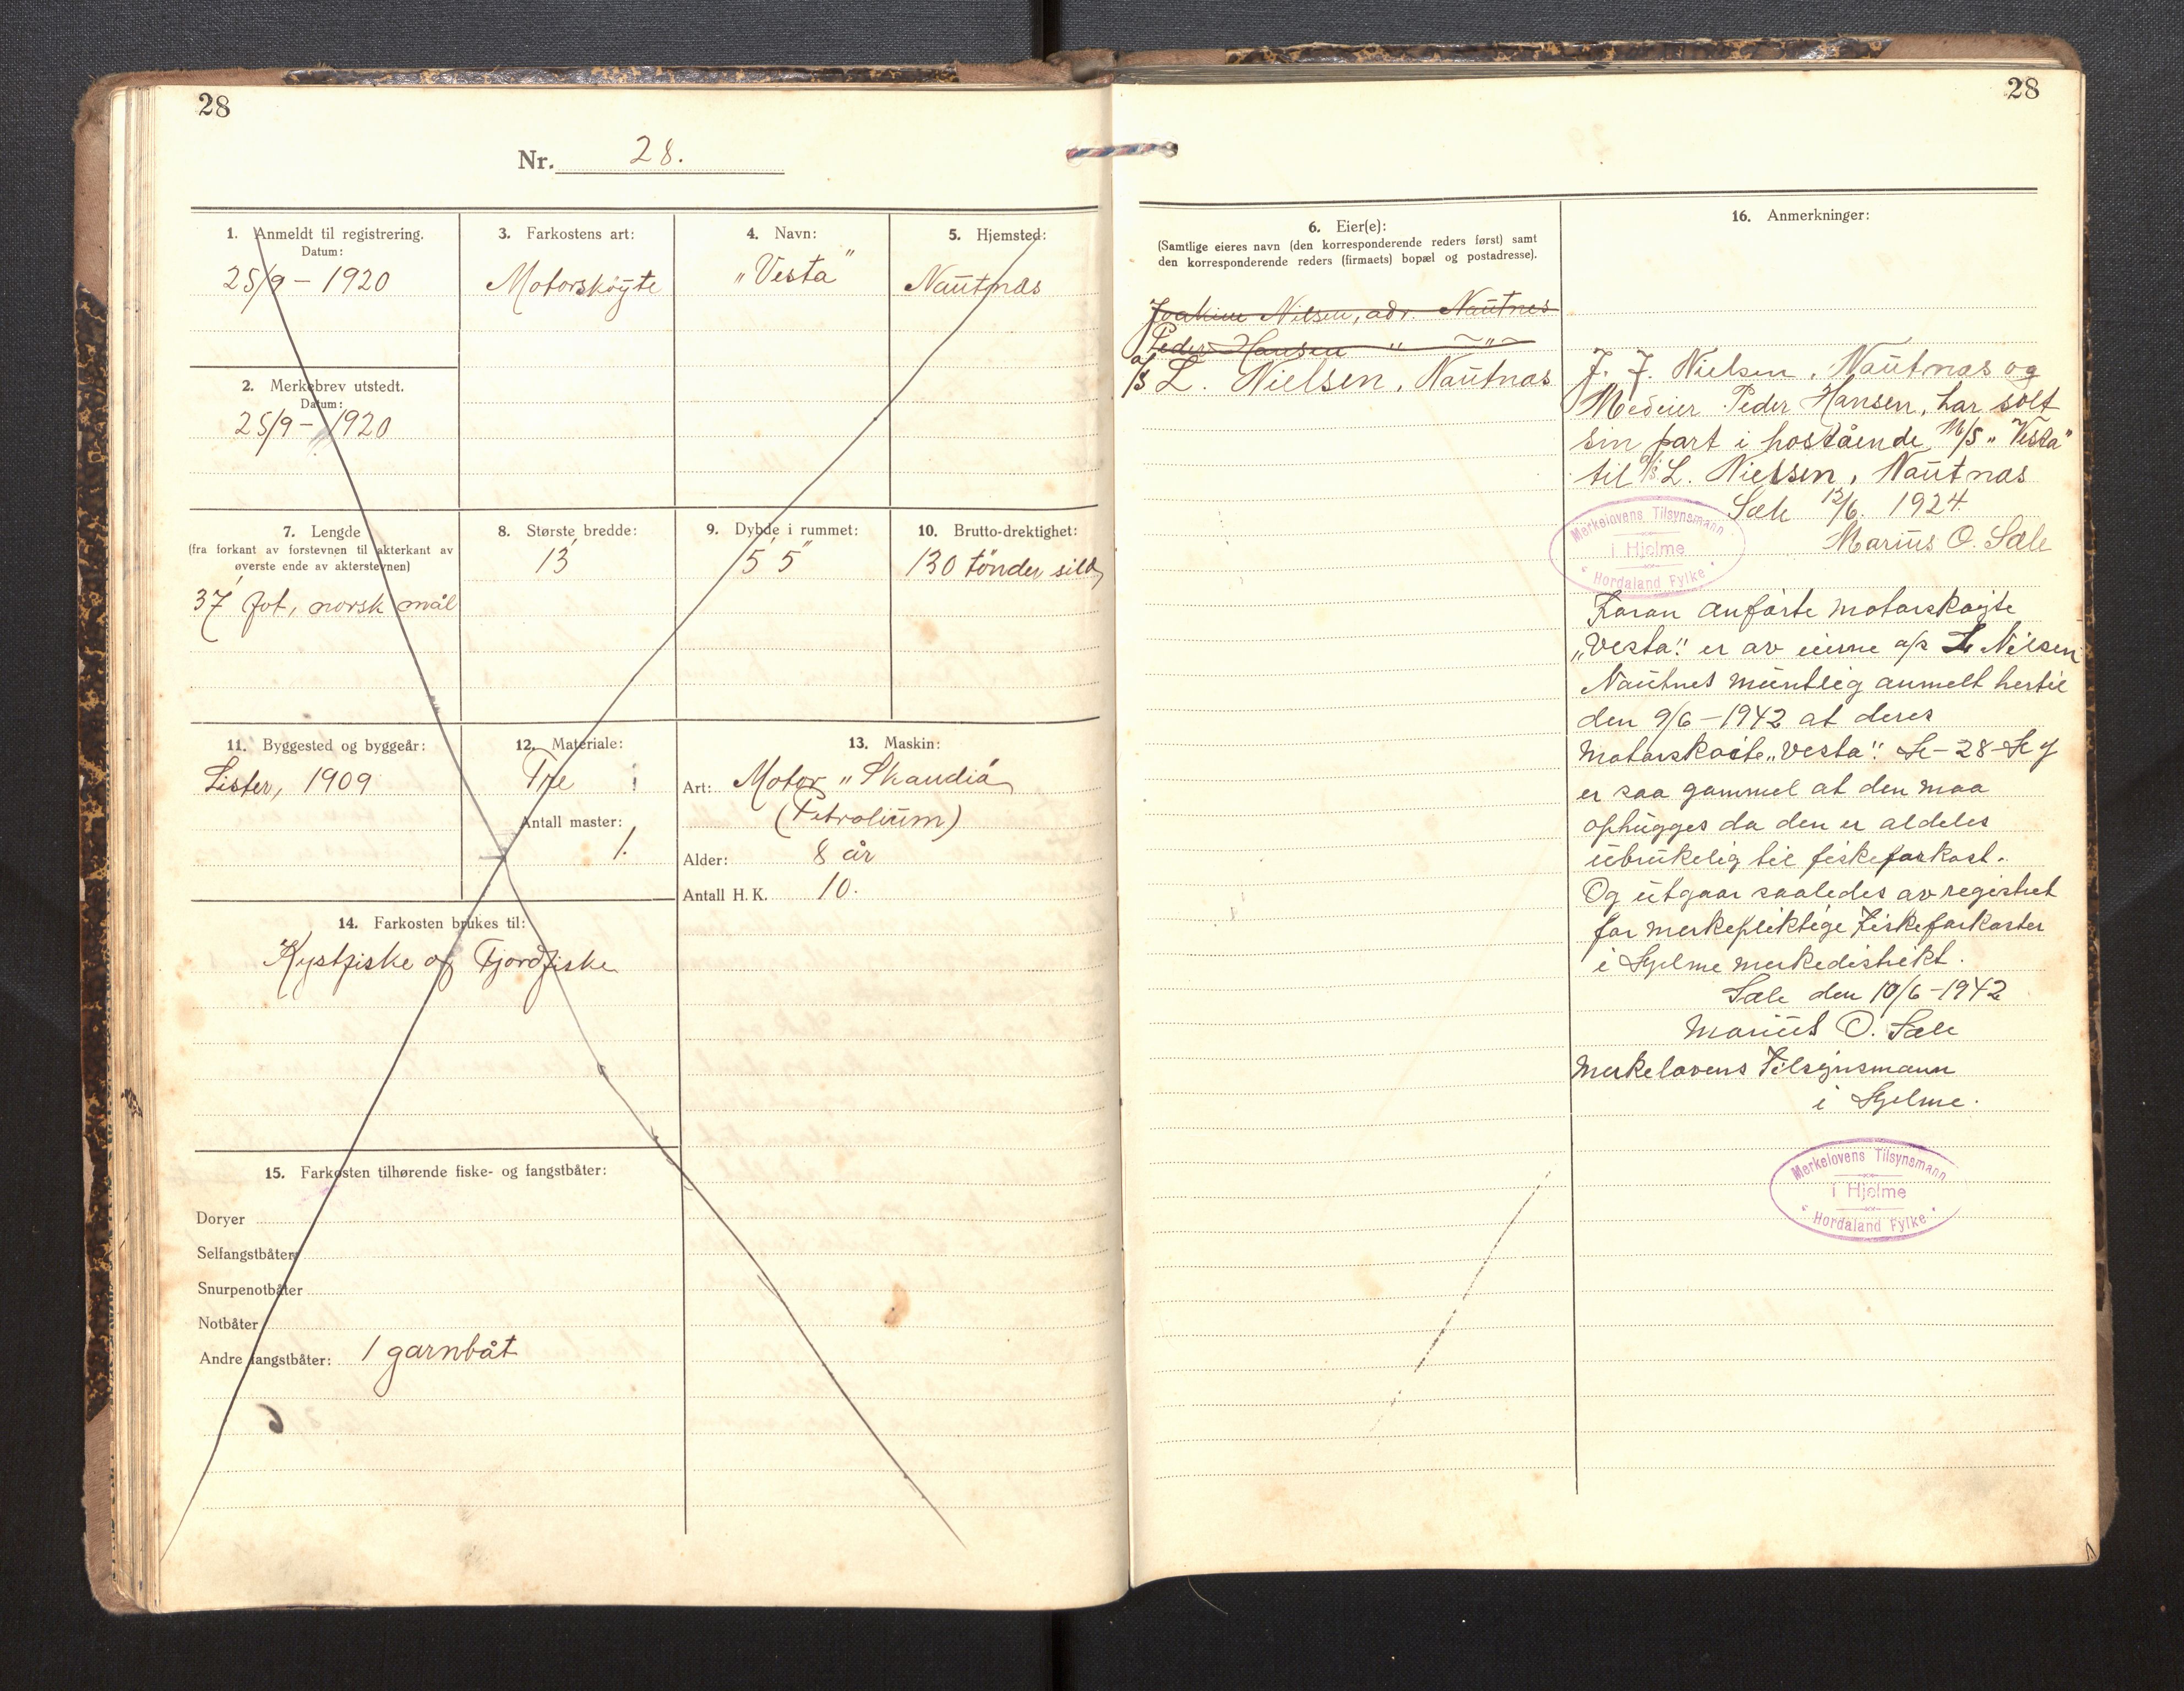 28
Nr. 28.
1. Anmeldt til registrering.
Datum:
25/9 - 1920
2. Merkebrev utstedt.
Datum:
25/9 - 1920
3. Farkostens art:
Motorskøyte
4. Navn:
„Vesta"
5. Hjemsted:
Nautnæs
7. Lengde
(fra forkant av forstevnen til akterkant av
øverste ende av akterstevnen)
37' fot, norsk mål
8. Største bredde:
13'
9. Dybde i rummet:
5' 5"
10. Brutto-drektighet:
130 tønder sild
11. Byggested og byggeår:
Lister, 1909
12. Materiale:
Tre
Antall master:
1.
13. Maskin:
Art: Motor „Skandia"
(Petrolium)
Alder: 8 år
Antall H. K. 10.
14. Farkosten brukes til:
Kystfiske og Fjordfiske
15. Farkosten tilhørende fiske- og fangstbåter:
Doryer
Selfangstbåter
Snurpenotbåter
Notbåter
Andre fangstbåter: 1 garnbåt
28
6. Eier(e):
(Samtlige eieres navn (den korresponderende reders først) samt
den korresponderende reders (firmaets) bopæl og postadresse).
Joakim Nilsen, adr. Nautnes
Peder Hansen " — " —
a/s L. Nielsen, Nautnæs
16. Anmerkninger:
J. J. Nielsen, Nautnæs og
Medeier Peder Hansen, har solt
sin part i hostående M/S „Vesta"
til a/s L. Nielsen, Nautnæs
Sæle 12/6. 1924
Marius O. Sæle
Merkelovens Tilsynsmann
i Hjelme
Hordaland Fylke
Foran anførte motorskøyte
„Vesta" er av eierne a/s L. Nilsen
Nautnes muntlig anmelt hertil
den 9/6 - 1942 at deres
Motorskøite „Vesta"
er saa gammel at den maa
ophugges da den er aldeles
ubrukelig til fiskefarkost.
Og utgaar saaledes av registret
for merkepliktige Fiskefarkoster
i Hjelme merkedistrikt.
Sæle den 10/6 - 1942
Marius O. Sæle
Merkelovens Tilsynsmann
i Hjelme.
Merkelovens Tilsynsmann
i Hjelme
Hordaland Fylke